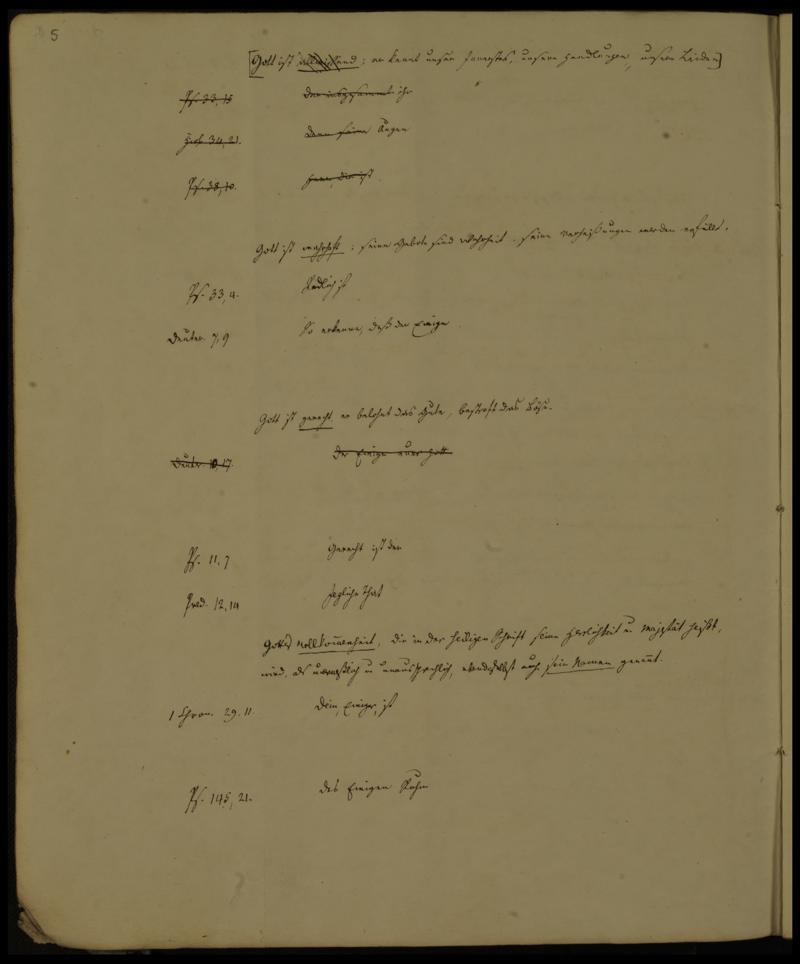 5
[Gott ist allwissend: er kennt unser Innerstes, unsere Handlungen, unsere Leiden]
Ps. 33, 15 der insgesammt ihr
Hiob 34, 21. Denn seine Augen
Ps. 38, 10. Herr, dir ist
Gott ist wahrhaft: seine Gebote sind Wahrheit, seine Verheißungen werden erfüllt.
Ps. 33, 4. Redlich ist
Deuter. 7, 9 So erkenne, daß der Ewige
Gott ist gerecht, er belohnt das Gute, bestraft das Böse.
Deuter 10, 17 Der Ewige euer Gott
Ps. 11, 7 Gerecht ist der
Pred. 12, 14 Jegliche That
Gottes Vollkom̄enheit, die in der heiligen Schrift seine Herrlichkeit u. Majestät heißt,
wird, als u. unaussprechlich, auch sein Namen genen̄t.
1 Chron. 29. 11. Dein, Ewiger, ist
Ps. 145, 21. Des Ewigen Ruhm